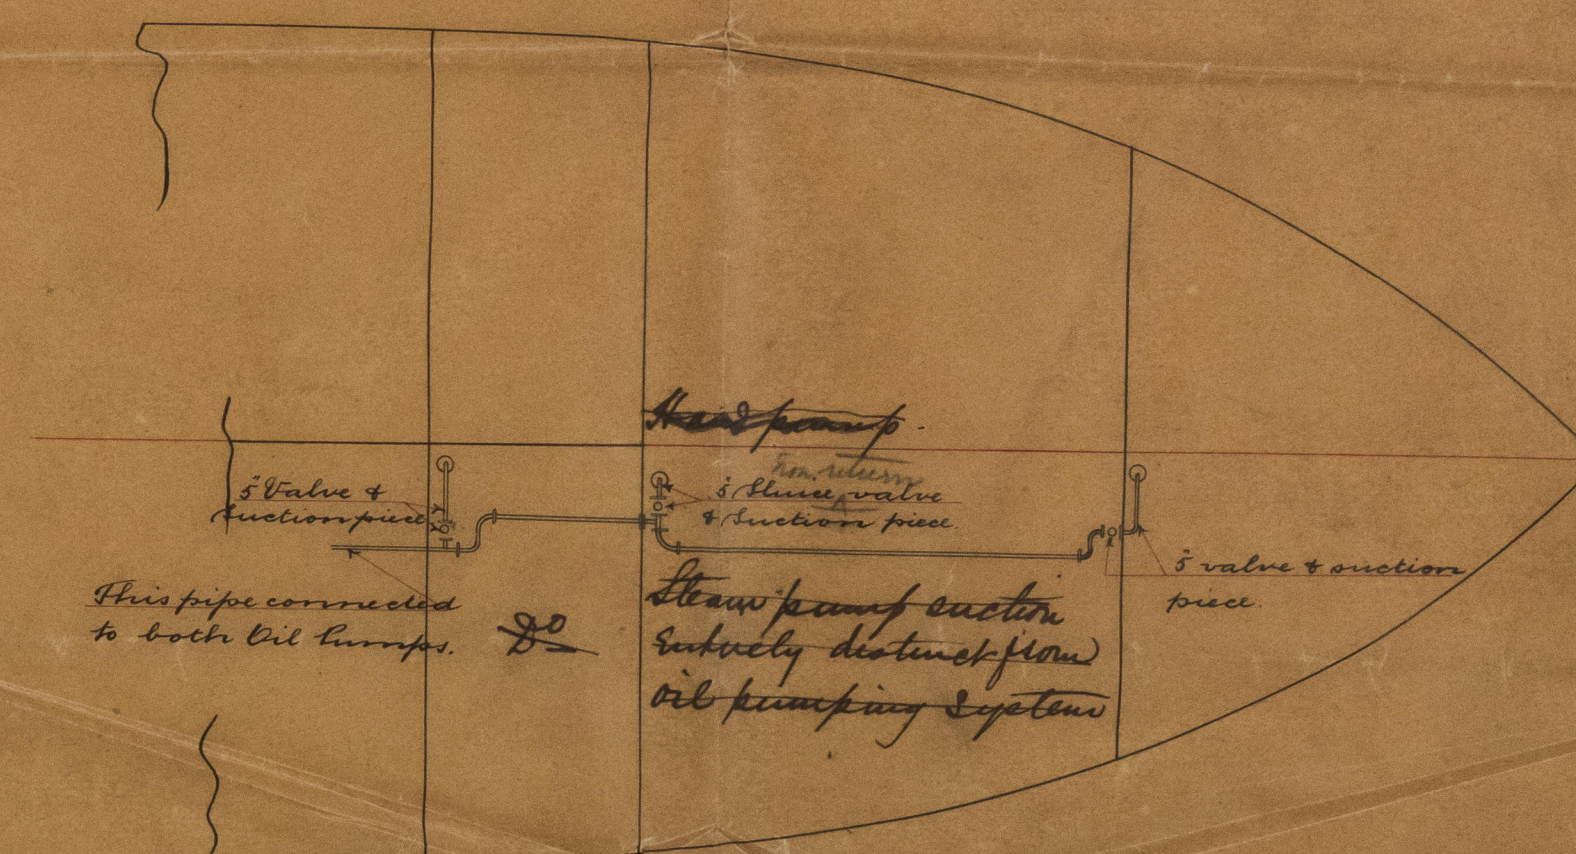 Hand pump.
non. return
5" Valve &
Suction piece
5" Sluice valve
& Suction piece.
5" valve & suction
piece.
This pipe connected
to both Oil Pumps.
Do
Steam pump suction
Entirely distinct from
oil pumping system